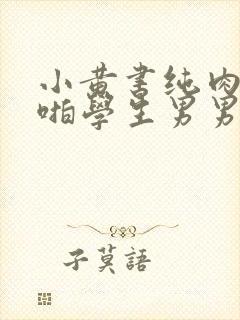 小黄書纯肉
啪學生男男
子莫語